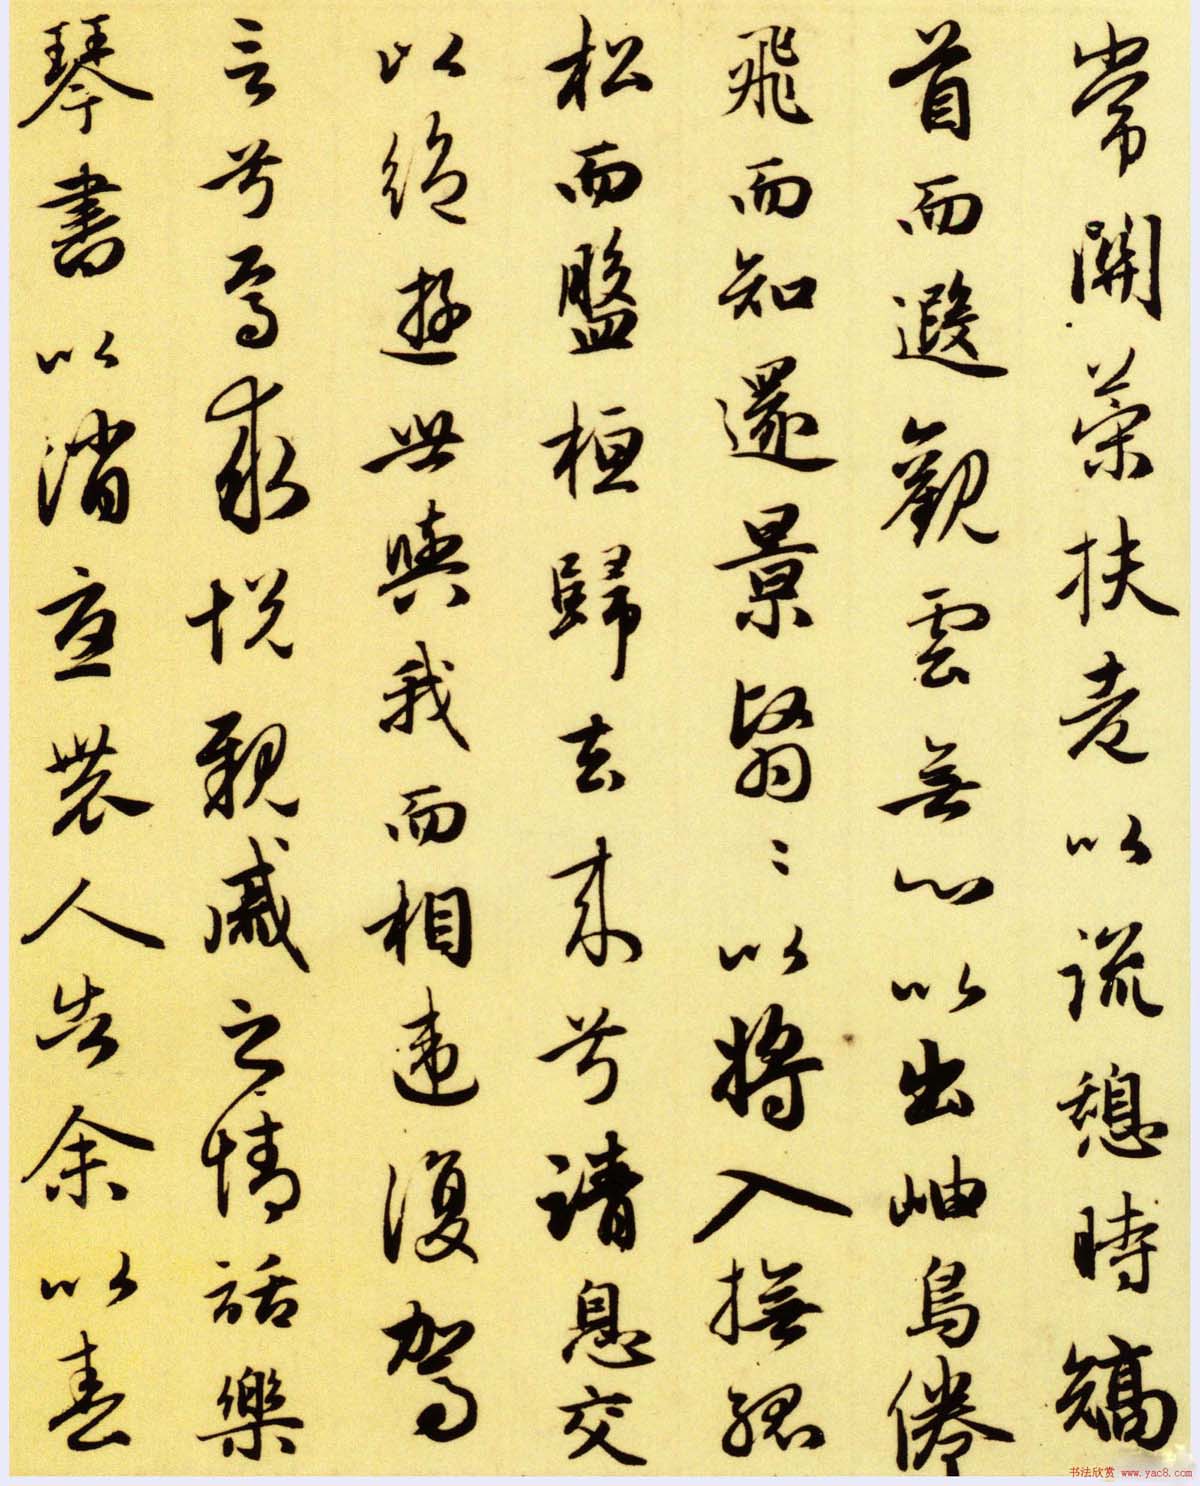 常關策扶老以流憩時矯
首而遐觀雲無心以出岫鳥倦
飛而知還景翳〻以將入撫孤
松而盤桓歸去來兮請息交
以絕遊世與我而相違復駕
言兮焉求悅親戚之情話樂
琴書以消憂農人告余以春
书法欣赏 www.yac8.com